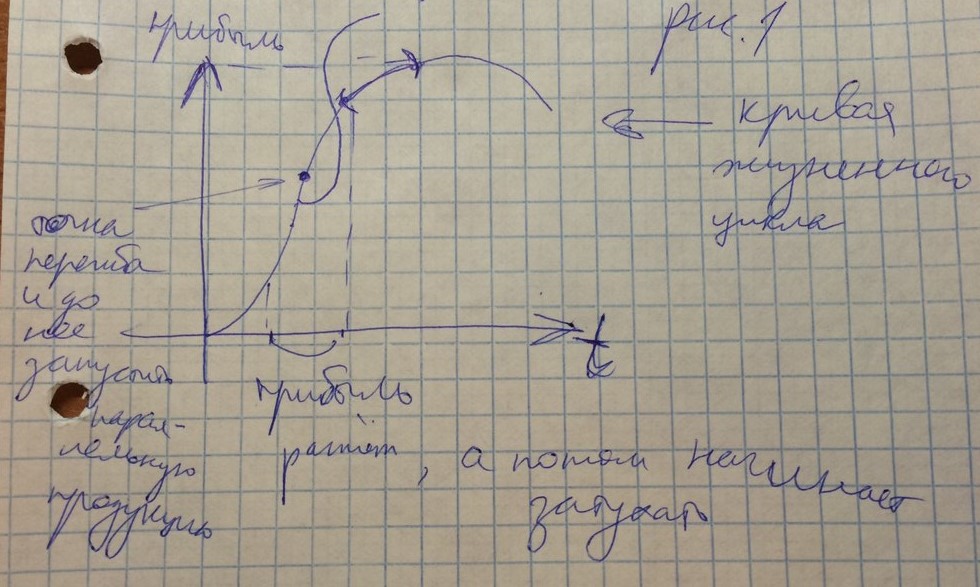 прибыль
рис. 1
кривая
жизненного
цикла
точка
перегиба
и до
нее
запустить
парал-
лельную
продукцию
t
прибыль
растёт, а потом начинает
затухать